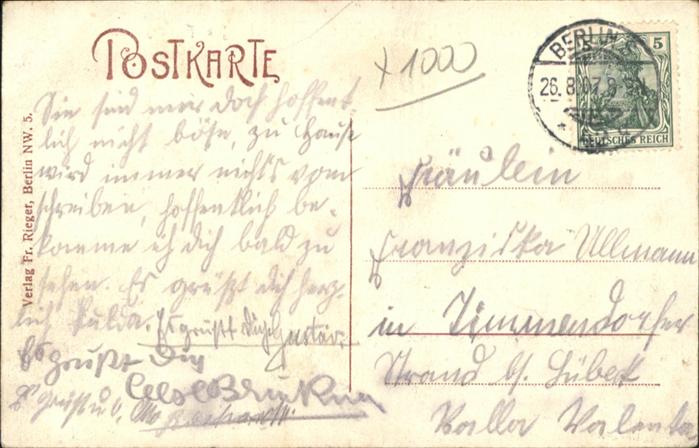 POSTKARTE
+ 1000
BERLIN
26.8.07. 8-9
5
DEUTSCHES REICH
Verlag Fr. Rieger, Berlin NW. 5.
Sie sind mir doch hoffent-
lich nicht böse, zu Hause
wird immer nichts vom
schreiben, hoffentlich be-
komme ich dich bald zu
sehen. Es grüßt dich herz-
lich Hulda. Es grüsst Dich Gustav.
Es grüßt Dich
Fräulein
Franziska Ullmann
in Timmendorfer
Strand b/. Lübeck
Villa